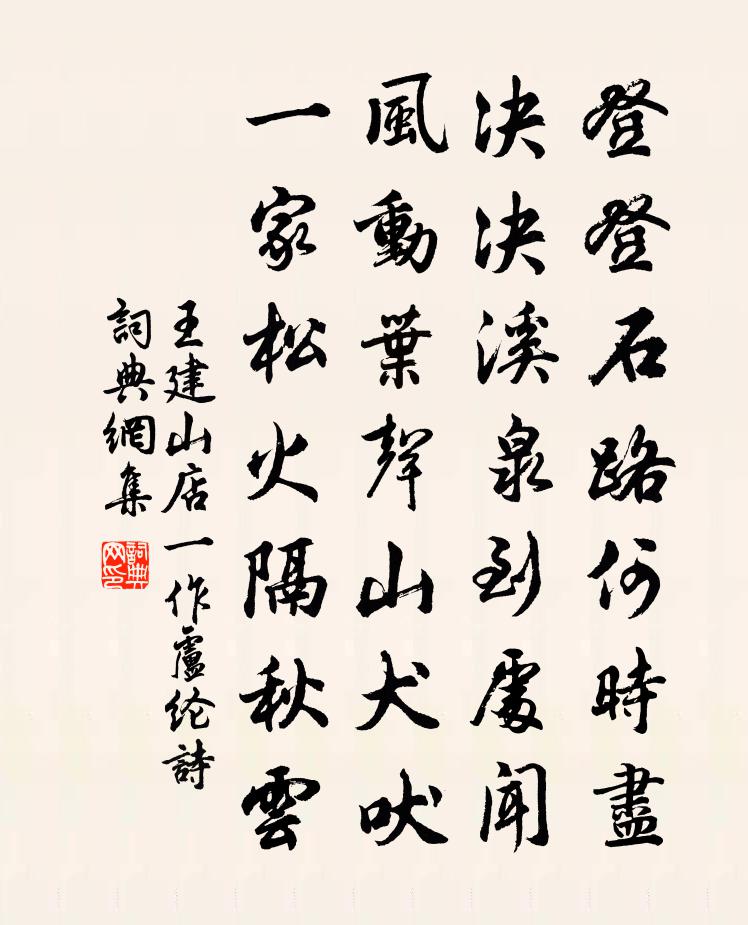 登登石路何時盡
決決溪泉到處聞
風動葉聲山犬吠
一家松火隔秋雲
王建山店一作盧纶詩
詞典網集
詞典网印